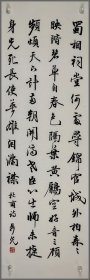 蜀相祠堂何處尋錦官城外柏森々
映階碧草自春色隔葉黃鸝空好音三顧
頻煩天下計兩朝開濟老臣心出師未捷
身先死長使英雄淚滿襟 杜甫詩